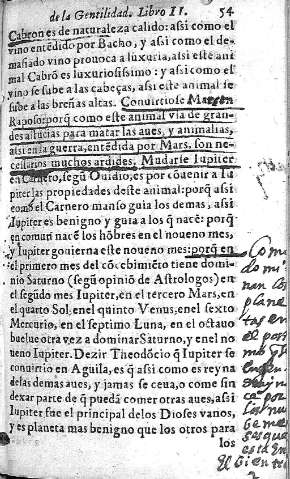 de la Gentilidad. Libro II. 54
Cabron es de naturaleza calido: assi como el
vino entẽdido por Bacho, y assi como el de-
masiado vino prouoca a luxuria, assi este ani
mal Cabrõ es luxuriosissimo: y assi como el
vino se sube a las cabeças, assi este animal se
sube a las breñas altas. Conuirtiose Mars en
Raposo: porq̃ como este animal vsa de gran-
des astucias para matar las aues, y animalias,
assi en la guerra, entẽdida por Mars, son ne-
cessarios muchos ardides. Mudarse Iupiter
en Carnero, segũ Ouidio, es por cõuenir a Iu
piter las propiedades deste animal: porq̃ assi
como el Carnero manso guia los demas, assi
Iupiter es benigno y guia a los q̃ nacẽ: porq̃
en comun nacẽ los hõbres en el noueno mes,
y Iupiter gouierna este noueno mes: porq̃ en
el primero mes del cõcebimiẽto tiene domi-
nio Saturno (segũ opiniõ de Astrologos) en
el segũdo mes Iupiter, en el tercero Mars, en
el quarto Sol, en el quinto Venus, en el sexto
Mercurio, en el septimo Luna, en el octauo
buelue otra vez a dominar Saturno, y en el no
ueno Iupiter. Dezir Theodocio q̃ Iupiter se
conuirtio en Aguila, es q̃ assi como es reyna
de las demas aues, y jamas se ceua, o come sin
dexar parte de q̃ puedã comer otras aues, assi
Iupiter fue el principal de los Dioses vanos,
y es planeta mas benigno que los otros para
los
Como
domi
nan los
plane
tas en
el
ca por
los nu
be me
ses que
esta en
el vientre